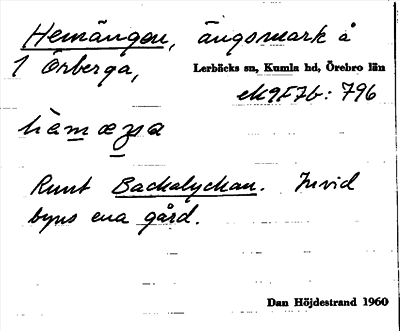 Hemängen, ängsmark å
1 Örberga,
Lerbäcks sn, Kumla hd, Örebro län
ek 9F7b: 796
hæmæŋa
Runt Backalyckan. Invid
byns ena gård.
Dan Höjdestrand 1960